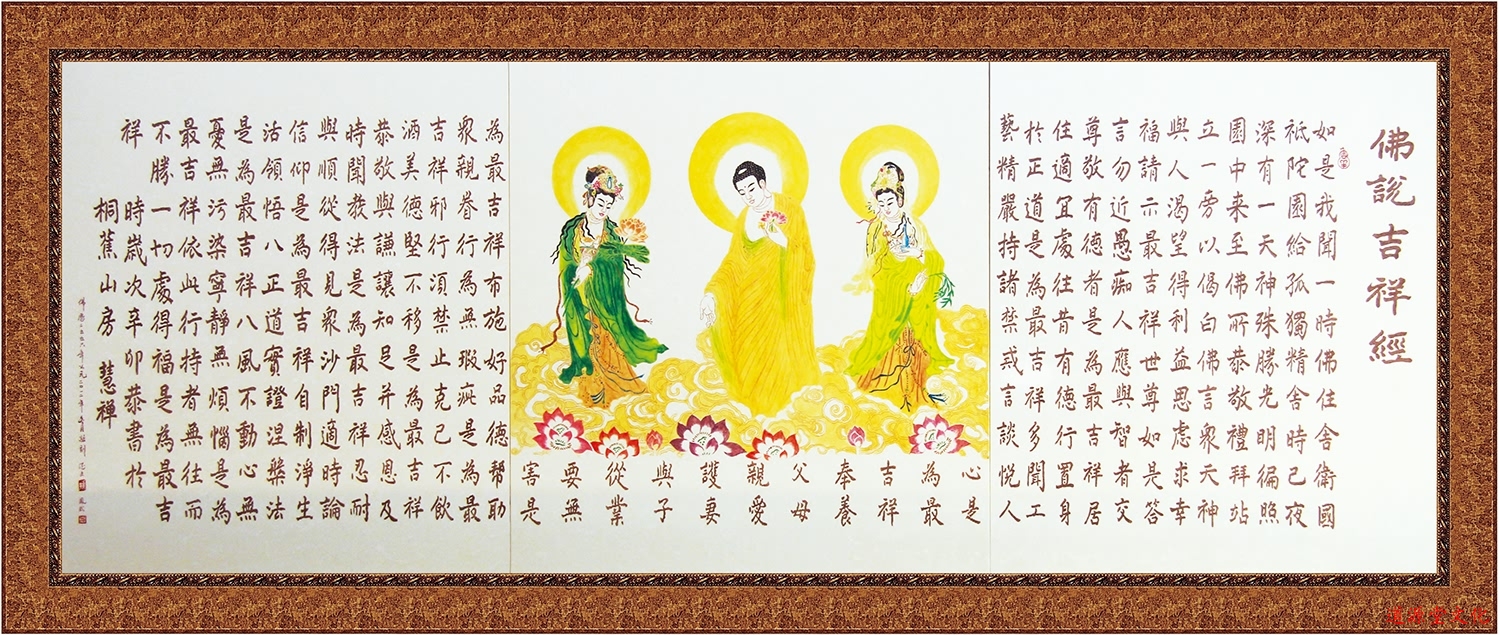 佛說吉祥經
如是我聞一時佛住舍衛國
祇陀園給孤獨精舍時已夜
深有一天神殊勝光明徧照
園中来至佛所恭敬禮拜站
立一旁以偈白佛言眾天神
與人渴望得利益思慮求幸
福請示最吉祥世尊如是答
言勿近愚痴人應與智者交
尊敬有德者是為最吉祥居
住適宜處往昔有德行置身
於正道是為最吉祥多聞工
藝精嚴持諸禁戒言談悅人
心是
為最
吉祥
奉養
父母
親愛
護妻
與子
從業
要無
害是
為最吉祥布施好品德幫助
眾親眷行為無瑕疵是為最
吉祥邪行須禁止克己不飲
酒美德堅不移是為最吉祥
恭敬與謙讓知足并感恩及
時聞教法是為最吉祥忍耐
與順從得見眾沙門適時論
信仰是為最吉祥自制淨生
活領悟八正道實證涅槃法
是為最吉祥八風不動心無
憂無污染寧靜無煩惱是為
最吉祥依此行持者無往而
不勝一切處得福是為最吉
祥
時歲次辛卯恭書於
桐蕉山房 慧禪